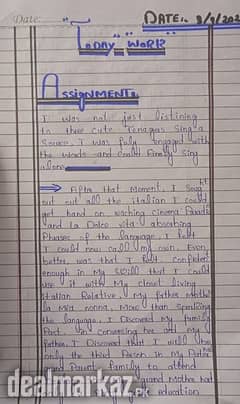 Date:
DATE:. 8/9/202
TODAY WORK
ASSIGNMENT:
I was not just listining
to thee cute Tenages Sing a
Source, I was fuly engaged with
the words and could finely Sing
alone
After that moment, I
out out all the italian I could
get hand on waching Cinema Paradi
and La Dolce vita absorbing
Phases of the language, I felt
I could now call my own. Even
better, was that I felt Confident
enough in My Skill that I could
use it with My closet living
italian Relative, My father Mothe
la Mia nonna. More than
the language, I Discoverd My family
Past. In Conversing
father, I Discoverd that I will
only the third Person in My
and Family to attend
and Mothe had
education
dealmarkaz
.pk